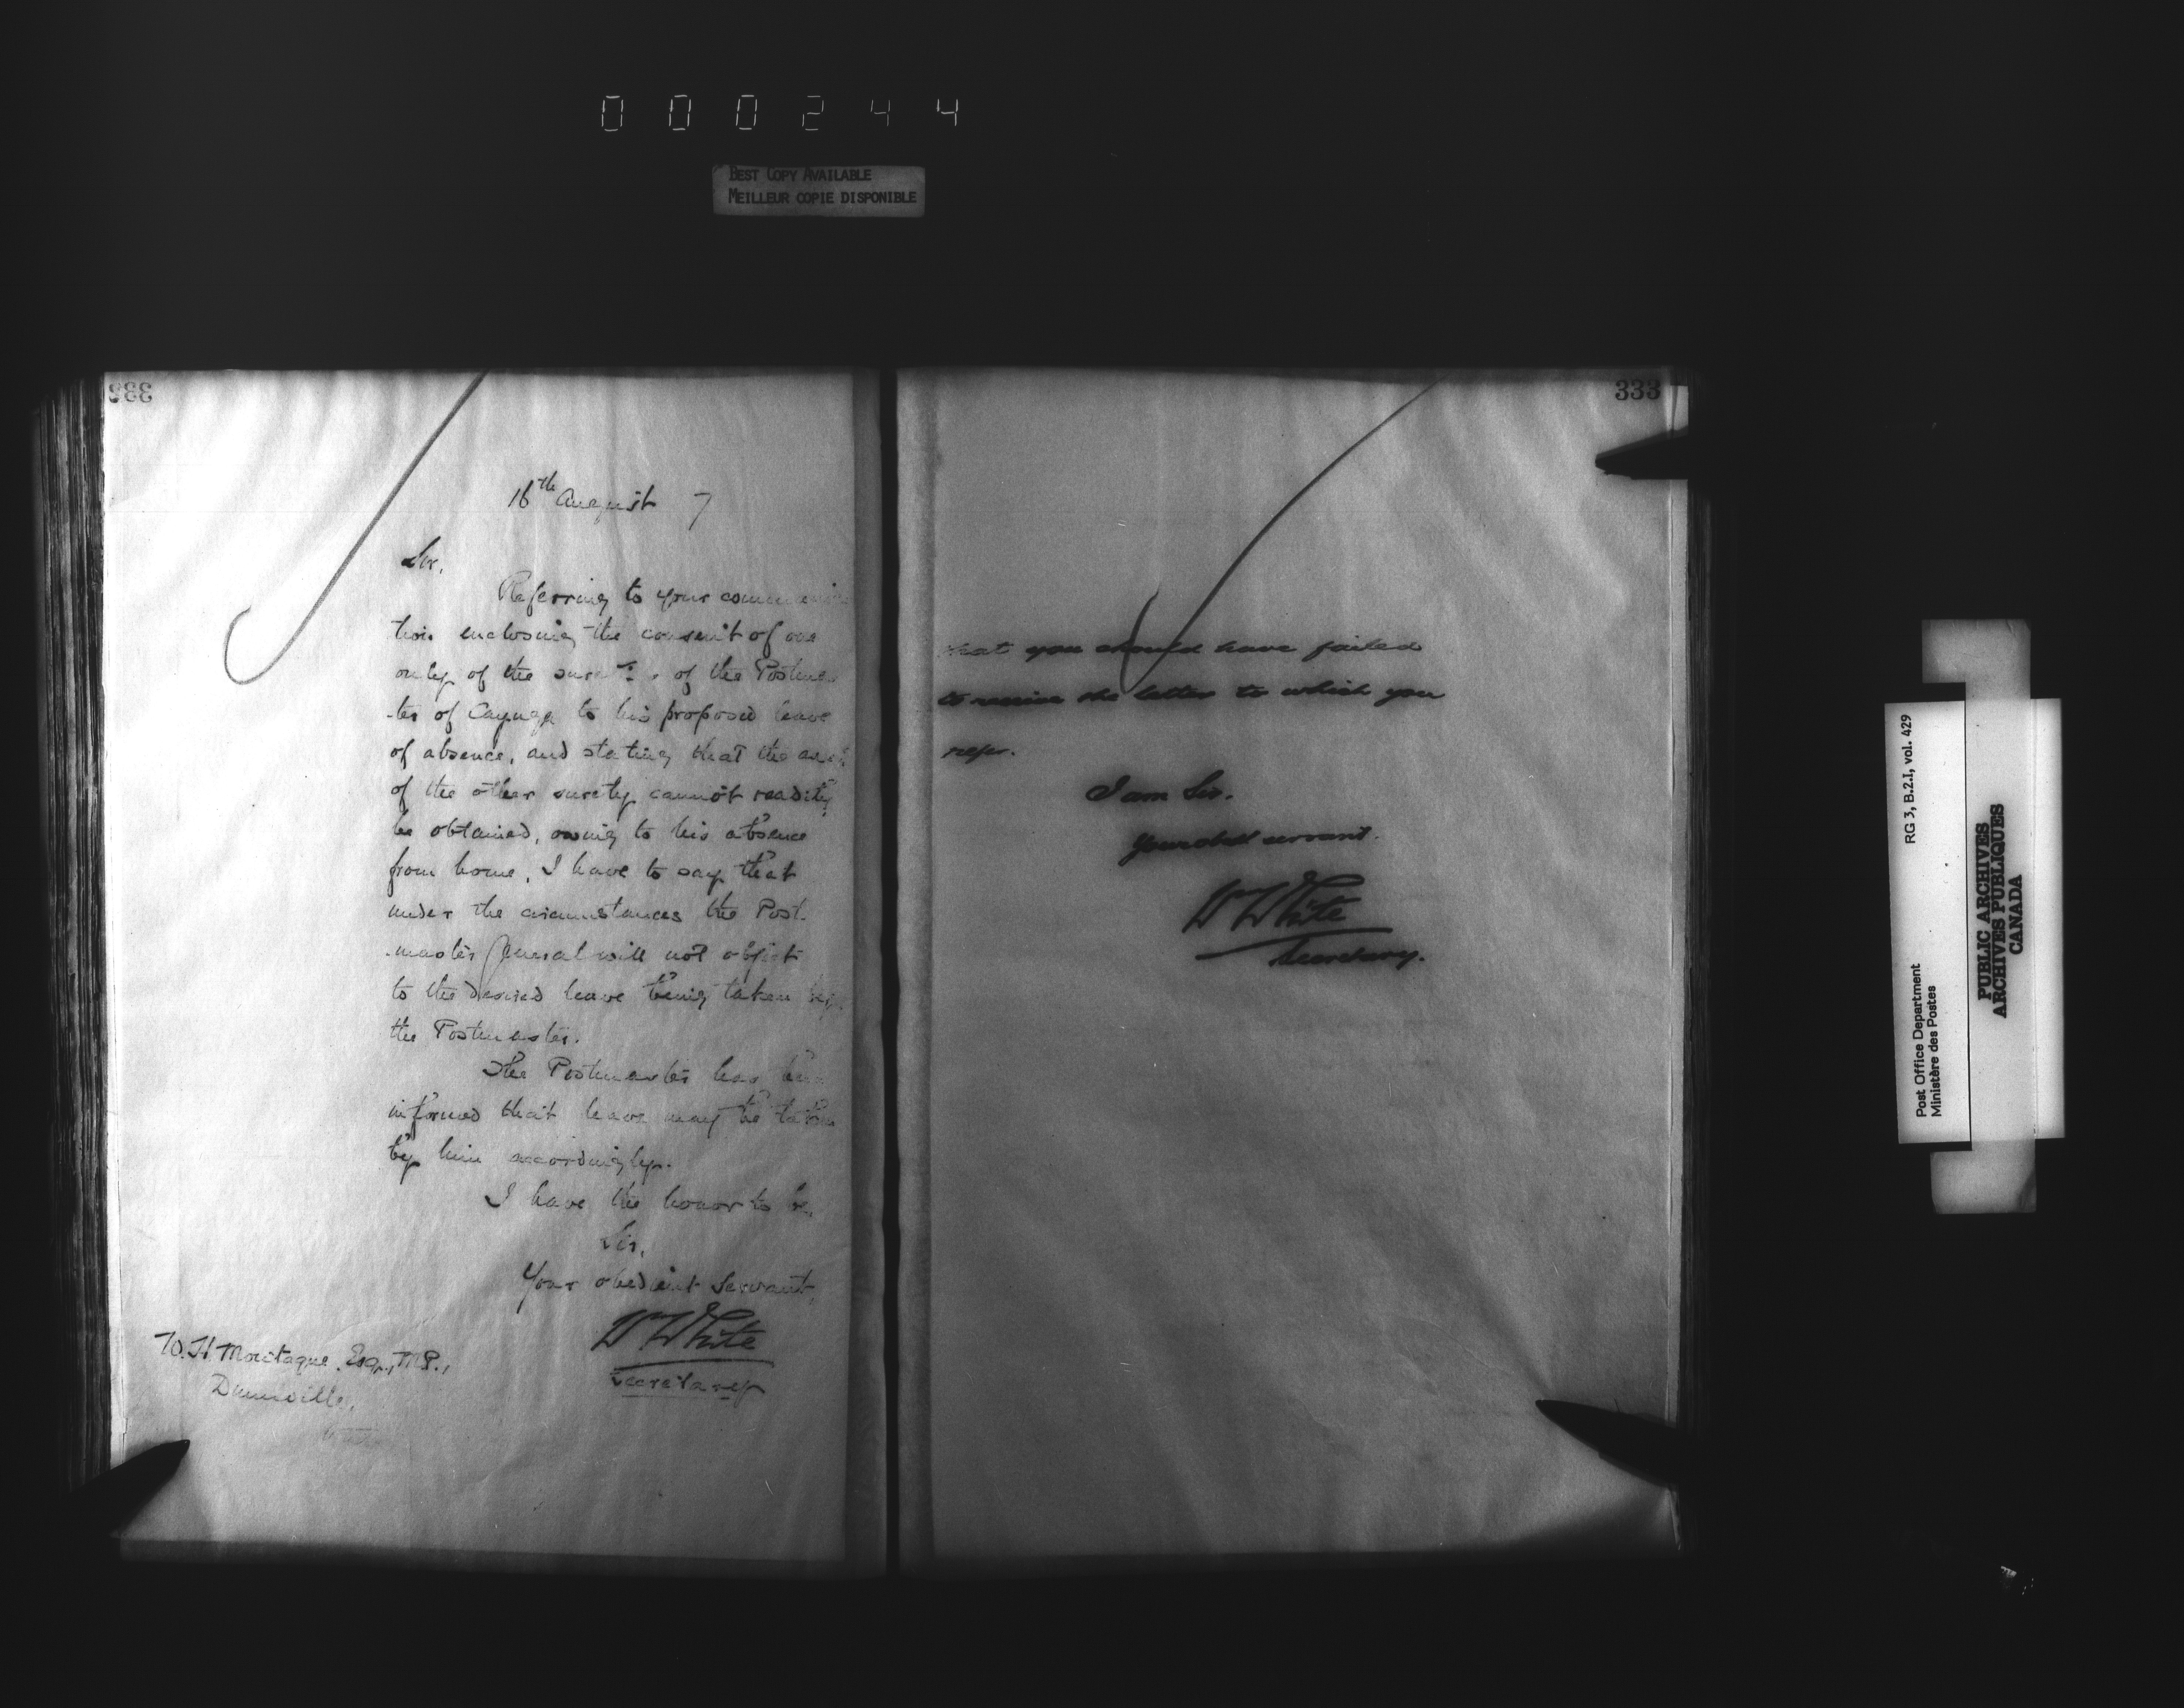 000244
BEST COPY AVAILABLE
MEILLEUR COPIE DISPONIBLE
333
16th August 7
Sir,
Referring to your communica
tion enclosing the consent of one
only of the sureties of the Postmas
-ter of Cayuga to his proposed leave
of absence, and stating that the
of the other surety cannot readily
be obtained, owing to his absence
from home, I have to say that
under the circumstances the Post
-master General will not object
to the desired leave being taken by
the Postmaster.
The Postmaster has been
informed that leave may be taken
by him accordingly.
I have the honor to be,
Sir,
Your obedient Servant,
W White
Secretary
W. H. Montague, Esq., M.P.,
Dunnville,
333
that you should have failed
to receive the letter to which you
refer.
I am Sir.
Your obedt servant.
W White
Secretary.
Post Office Department
Ministère des Postes
RG 3, B.2.I, vol. 429
PUBLIC ARCHIVES
ARCHIVES PUBLIQUES
CANADA